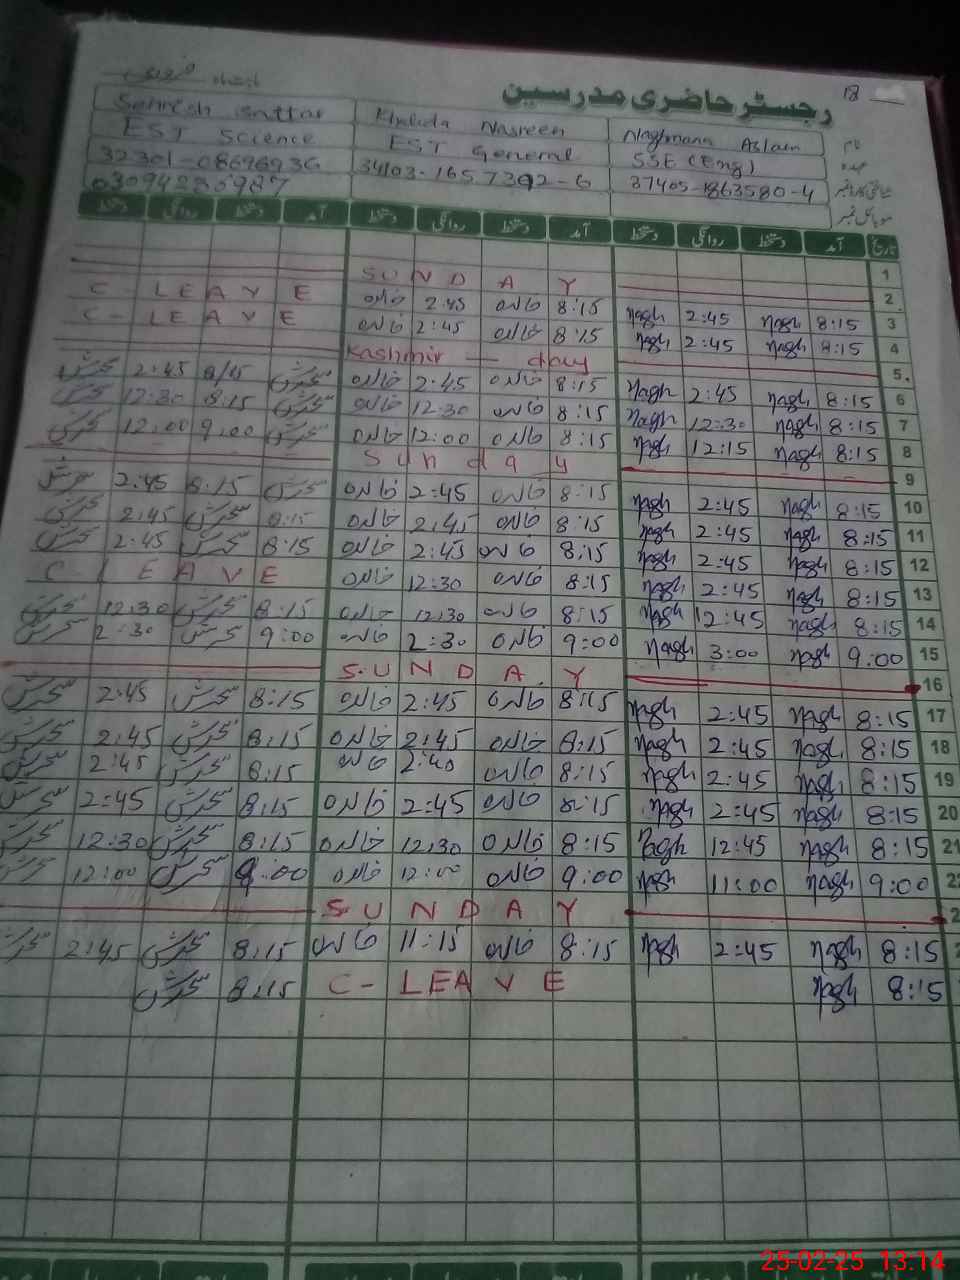 رجسٹر حاضری مدرسین
18
نام Naghmana Aslam Khalida Nasreen Sehresh Sattar
عہدہ SSE (Eng) EST General EST Science
شناختی کارڈ نمبر 37405-1863580-4 34103-1657392-6
موبائل نمبر 03094235987
تاریخ آمد دستخط روانگی دستخط آمد دستخط روانگی دستخط آمد دستخط روانگی دستخط
1
2 SUNDAY
3 8:15 Nagh 2:45 Nagh 8:15 خالدہ 2:45 خالدہ C-LEAVE
4 8:15 Nagh 2:45 Nagh 8:15 خالدہ 2:45 خالدہ C-LEAVE
5 Kashmir — day
6 8:15 Nagh 2:45 Nagh 8:15 خالدہ 2:45 خالدہ سحرش 8:15 2:45 سحرش
7 8:15 Nagh 12:30 Nagh 8:15 خالدہ 12:30 خالدہ سحرش 8:15 12:30 سحرش
8 8:15 Nagh 12:15 Nagh 8:15 خالدہ 12:00 خالدہ سحرش 9:00 12:00 سحرش
9 Sunday
10 8:15 Nagh 2:45 Nagh 8:15 خالدہ 2:45 خالدہ سحرش 8:15 2:45 سحرش
11 8:15 Nagh 2:45 Nagh 8:15 خالدہ 2:45 خالدہ 8:15 سحرش 2:45 سحرش
12 8:15 Nagh 2:45 Nagh 8:15 خالدہ 2:45 خالدہ 8:15 سحرش 2:45 سحرش
13 8:15 Nagh 2:45 Nagh 8:15 12:30 خالدہ C-LEAVE
14 8:15 Nagh 12:45 Nagh 8:15 خالدہ 12:30 خالدہ 8:15 سحرش 12:30 سحرش
15 9:00 Nagh 3:00 Nagh 9:00 خالدہ 2:30 خالدہ 9:00 سحرش 2:30 سحرش
16 SUNDAY
17 8:15 Nagh 2:45 Nagh 8:15 خالدہ 2:45 خالدہ 8:15 سحرش 2:45 سحرش
18 8:15 Nagh 2:45 Nagh 8:15 خالدہ 2:45 خالدہ 8:15 سحرش 2:45 سحرش
19 8:15 Nagh 2:45 Nagh 8:15 خالدہ 2:40 خالدہ 8:15 سحرش 2:45 سحرش
20 8:15 Nagh 2:45 Nagh 8:15 خالدہ 2:45 خالدہ 8:15 سحرش 2:45 سحرش
21 8:15 Nagh 12:45 Nagh 8:15 خالدہ 12:30 خالدہ 8:15 سحرش 12:30 سحرش
22 9:00 Nagh 11:00 Nagh 9:00 خالدہ 12:00 خالدہ 9:00 سحرش 12:00 سحرش
SUNDAY
8:15 Nagh 2:45 Nagh 8:15 خالدہ 11:15 خالدہ 8:15 سحرش 2:45 سحرش
8:15 Nagh C-LEAVE 8:15 سحرش
25-02-25 13:14